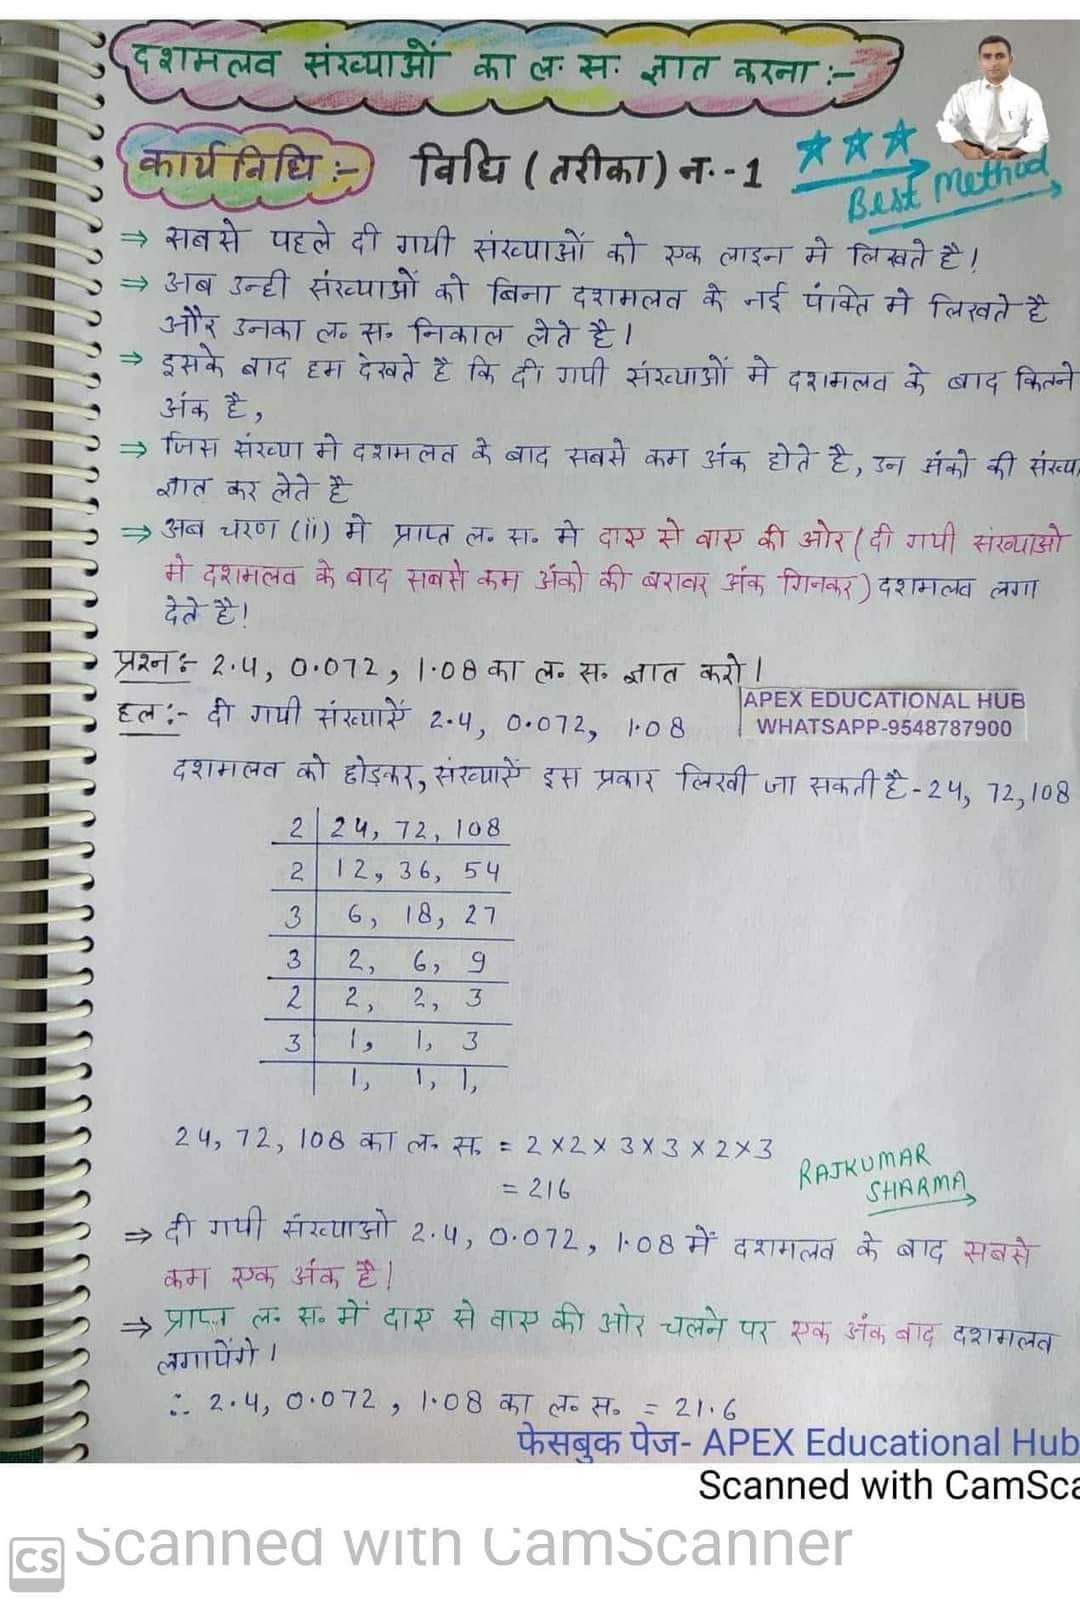 दशमलव संख्याओं का ल. स. ज्ञात करना :-
कार्यविधि :- विधि (तरीका) न.-1
Best Method
⇒ सबसे पहले दी गयी संख्याओं को एक लाइन मे लिखते है!
⇒ अब उन्ही संख्याओं को बिना दशमलव के नई पंक्ति मे लिखते है
और उनका ल० स० निकाल लेते है।
⇒ इसके बाद हम देखते है कि दी गयी संख्याओं मे दशमलव के बाद कितने
अंक है,
⇒ जिस संख्या मे दशमलव के बाद सबसे कम अंक होते है, उन अंको की संख्या
ज्ञात कर लेते है
⇒ अब चरण (ii) मे प्राप्त ल. स. मे दाए से वाए की ओर (दी गयी संख्याओ
मे दशमलव के बाद सबसे कम अंको की बरावर अंक गिनकर) दशमलव लगा
देते है!
प्रश्न :- 2.4, 0.072, 1.08 का ल० स० ज्ञात करो।
हल :- दी गयी संख्याऐं 2.4, 0.072, 1.08
APEX EDUCATIONAL HUB
WHATSAPP-9548787900
दशमलव को होडकर, संख्याऐं इस प्रकार लिखी जा सकती है - 24, 72, 108
2 | 24, 72, 108
2 | 12, 36, 54
3 | 6, 18, 27
3 | 2, 6, 9
2 | 2, 2, 3
3 | 1, 1, 3
| 1, 1, 1,
24, 72, 108 का ल. स. = 2×2×3×3×2×3
= 216
RAJKUMAR
SHARMA
⇒ दी गयी संख्याओ 2.4, 0.072, 1.08 में दशमलव के बाद सबसे
कम एक अंक है!
⇒ प्राप्त ल. स. में दाए से वाए की ओर चलने पर एक अंक बाद दशमलव
लगायेंगे।
∴ 2.4, 0.072, 1.08 का ल० स० = 21.6
फेसबुक पेज- APEX Educational Hub
Scanned with CamSca
CS Scanned with CamScanner